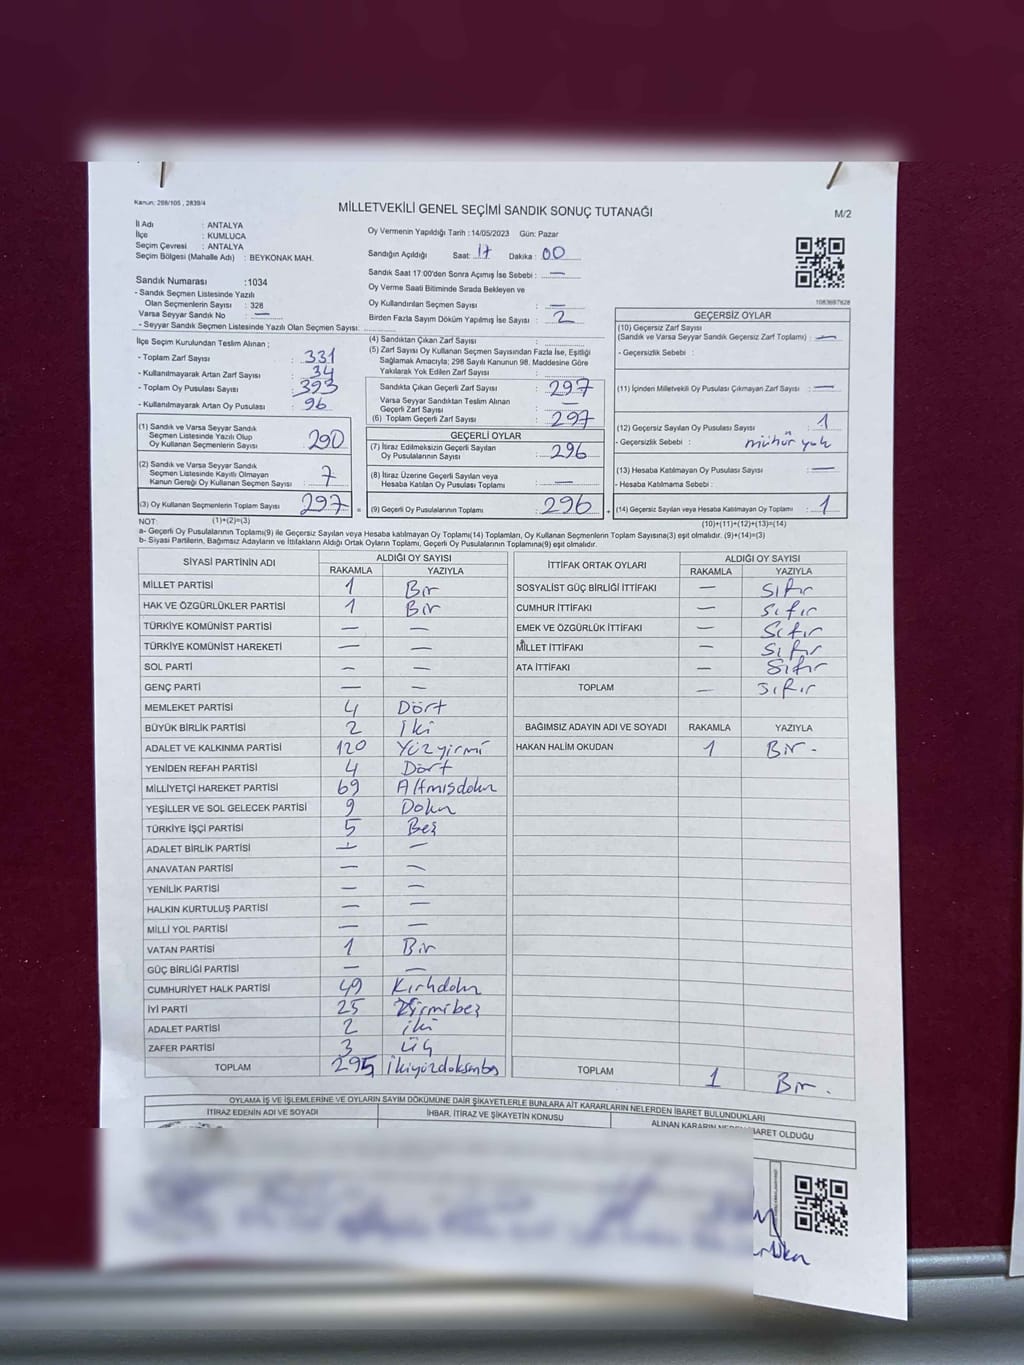 Kanun: 298/105 , 2839/4
MİLLETVEKİLİ GENEL SEÇİMİ SANDIK SONUÇ TUTANAĞI
M/2
İl Adı : ANTALYA
İlçe : KUMLUCA
Seçim Çevresi : ANTALYA
Seçim Bölgesi (Mahalle Adı) : BEYKONAK MAH.
Oy Vermenin Yapıldığı Tarih : 14/05/2023 Gün: Pazar
Sandığın Açıldığı Saat: 17 Dakika : 00
Sandık Saat 17:00'den Sonra Açılmış İse Sebebi : —
Oy Verme Saati Bitiminde Sırada Bekleyen ve
Oy Kullandırılan Seçmen Sayısı : —
Birden Fazla Sayım Döküm Yapılmış İse Sayısı : 2
Sandık Numarası :1034
- Sandık Seçmen Listesinde Yazılı
Olan Seçmenlerin Sayısı : 328
Varsa Seyyar Sandık No : —
- Seyyar Sandık Seçmen Listesinde Yazılı Olan Seçmen Sayısı:
İlçe Seçim Kurulundan Teslim Alınan ;
- Toplam Zarf Sayısı : 331
- Kullanılmayarak Artan Zarf Sayısı : 34
- Toplam Oy Pusulası Sayısı : 393
- Kullanılmayarak Artan Oy Pusulası : 96
(1) Sandık ve Varsa Seyyar Sandık
Seçmen Listesinde Yazılı Olup
Oy Kullanan Seçmenlerin Sayısı : 290
(2) Sandık ve Varsa Seyyar Sandık
Seçmen Listesinde Kayıtlı Olmayan
Kanun Gereği Oy Kullanan Seçmen Sayısı : 7
(3) Oy Kullanan Seçmenlerin Toplam Sayısı : 297
(4) Sandıktan Çıkan Zarf Sayısı :
(5) Zarf Sayısı Oy Kullanan Seçmen Sayısından Fazla İse, Eşitliği
Sağlamak Amacıyla; 298 Sayılı Kanunun 98. Maddesine Göre
Yakılarak Yok Edilen Zarf Sayısı :
Sandıkta Çıkan Geçerli Zarf Sayısı : 297
Varsa Seyyar Sandıktan Teslim Alınan
Geçerli Zarf Sayısı : —
(6) Toplam Geçerli Zarf Sayısı : 297
GEÇERLİ OYLAR
(7) İtiraz Edilmeksizin Geçerli Sayılan
Oy Pusulalarının Sayısı : 296
(8) İtiraz Üzerine Geçerli Sayılan veya
Hesaba Katılan Oy Pusulası Toplamı : —
= (9) Geçerli Oy Pusulalarının Toplamı : 296
1083697828
GEÇERSİZ OYLAR
(10) Geçersiz Zarf Sayısı
(Sandık ve Varsa Seyyar Sandık Geçersiz Zarf Toplamı) : —
- Geçersizlik Sebebi :
(11) İçinden Milletvekili Oy Pusulası Çıkmayan Zarf Sayısı : —
(12) Geçersiz Sayılan Oy Pusulası Sayısı : 1
- Geçersizlik Sebebi : mühür yok
(13) Hesaba Katılmayan Oy Pusulası Sayısı : —
- Hesaba Katılmama Sebebi :
+ (14) Geçersiz Sayılan veya Hesaba Katılmayan Oy Toplamı : 1
NOT: (1)+(2)=(3)
(10)+(11)+(12)+(13)=(14)
a- Geçerli Oy Pusulalarının Toplamı(9) ile Geçersiz Sayılan veya Hesaba Katılmayan Oy Toplamı(14) Toplamları, Oy Kullanan Seçmenlerin Toplam Sayısına(3) eşit olmalıdır. (9)+(14)=(3)
b- Siyasi Partilerin, Bağımsız Adayların ve İttifakların Aldığı Ortak Oyların Toplamı, Geçerli Oy Pusulalarının Toplamına(9) eşit olmalıdır.
SİYASİ PARTİNİN ADI ALDIĞI OY SAYISI
RAKAMLA YAZIYLA
MİLLET PARTİSİ 1 Bir
HAK VE ÖZGÜRLÜKLER PARTİSİ 1 Bir
TÜRKİYE KOMÜNİST PARTİSİ — —
TÜRKİYE KOMÜNİST HAREKETİ — —
SOL PARTİ — —
GENÇ PARTİ — —
MEMLEKET PARTİSİ 4 Dört
BÜYÜK BİRLİK PARTİSİ 2 İki
ADALET VE KALKINMA PARTİSİ 120 Yüzyirmi
YENİDEN REFAH PARTİSİ 4 Dört
MİLLİYETÇİ HAREKET PARTİSİ 69 Altmışdokuz
YEŞİLLER VE SOL GELECEK PARTİSİ 9 Dokuz
TÜRKİYE İŞÇİ PARTİSİ 5 Beş
ADALET BİRLİK PARTİSİ — —
ANAVATAN PARTİSİ — —
YENİLİK PARTİSİ — —
HALKIN KURTULUŞ PARTİSİ — —
MİLLİ YOL PARTİSİ — —
VATAN PARTİSİ 1 Bir
GÜÇ BİRLİĞİ PARTİSİ — —
CUMHURİYET HALK PARTİSİ 49 Kırkdokuz
İYİ PARTİ 25 Yirmibeş
ADALET PARTİSİ 2 iki
ZAFER PARTİSİ 3 üç
TOPLAM 295 ikiyüzdoksanbeş
İTTİFAK ORTAK OYLARI ALDIĞI OY SAYISI
RAKAMLA YAZIYLA
SOSYALİST GÜÇ BİRLİĞİ İTTİFAKI — Sıfır
CUMHUR İTTİFAKI — Sıfır
EMEK VE ÖZGÜRLÜK İTTİFAKI — Sıfır
MİLLET İTTİFAKI — Sıfır
ATA İTTİFAKI — Sıfır
TOPLAM — Sıfır
BAĞIMSIZ ADAYIN ADI VE SOYADI RAKAMLA YAZIYLA
HAKAN HALİM OKUDAN 1 Bir.
TOPLAM 1 Bir.
OYLAMA İŞ VE İŞLEMLERİNE VE OYLARIN SAYIM DÖKÜMÜNE DAİR ŞİKAYETLERLE BUNLARA AİT KARARLARIN NELERDEN İBARET BULUNDUKLARI
İTİRAZ EDENİN ADI VE SOYADI İHBAR, İTİRAZ VE ŞİKAYETİN KONUSU ALINAN KARARIN OLDUĞU